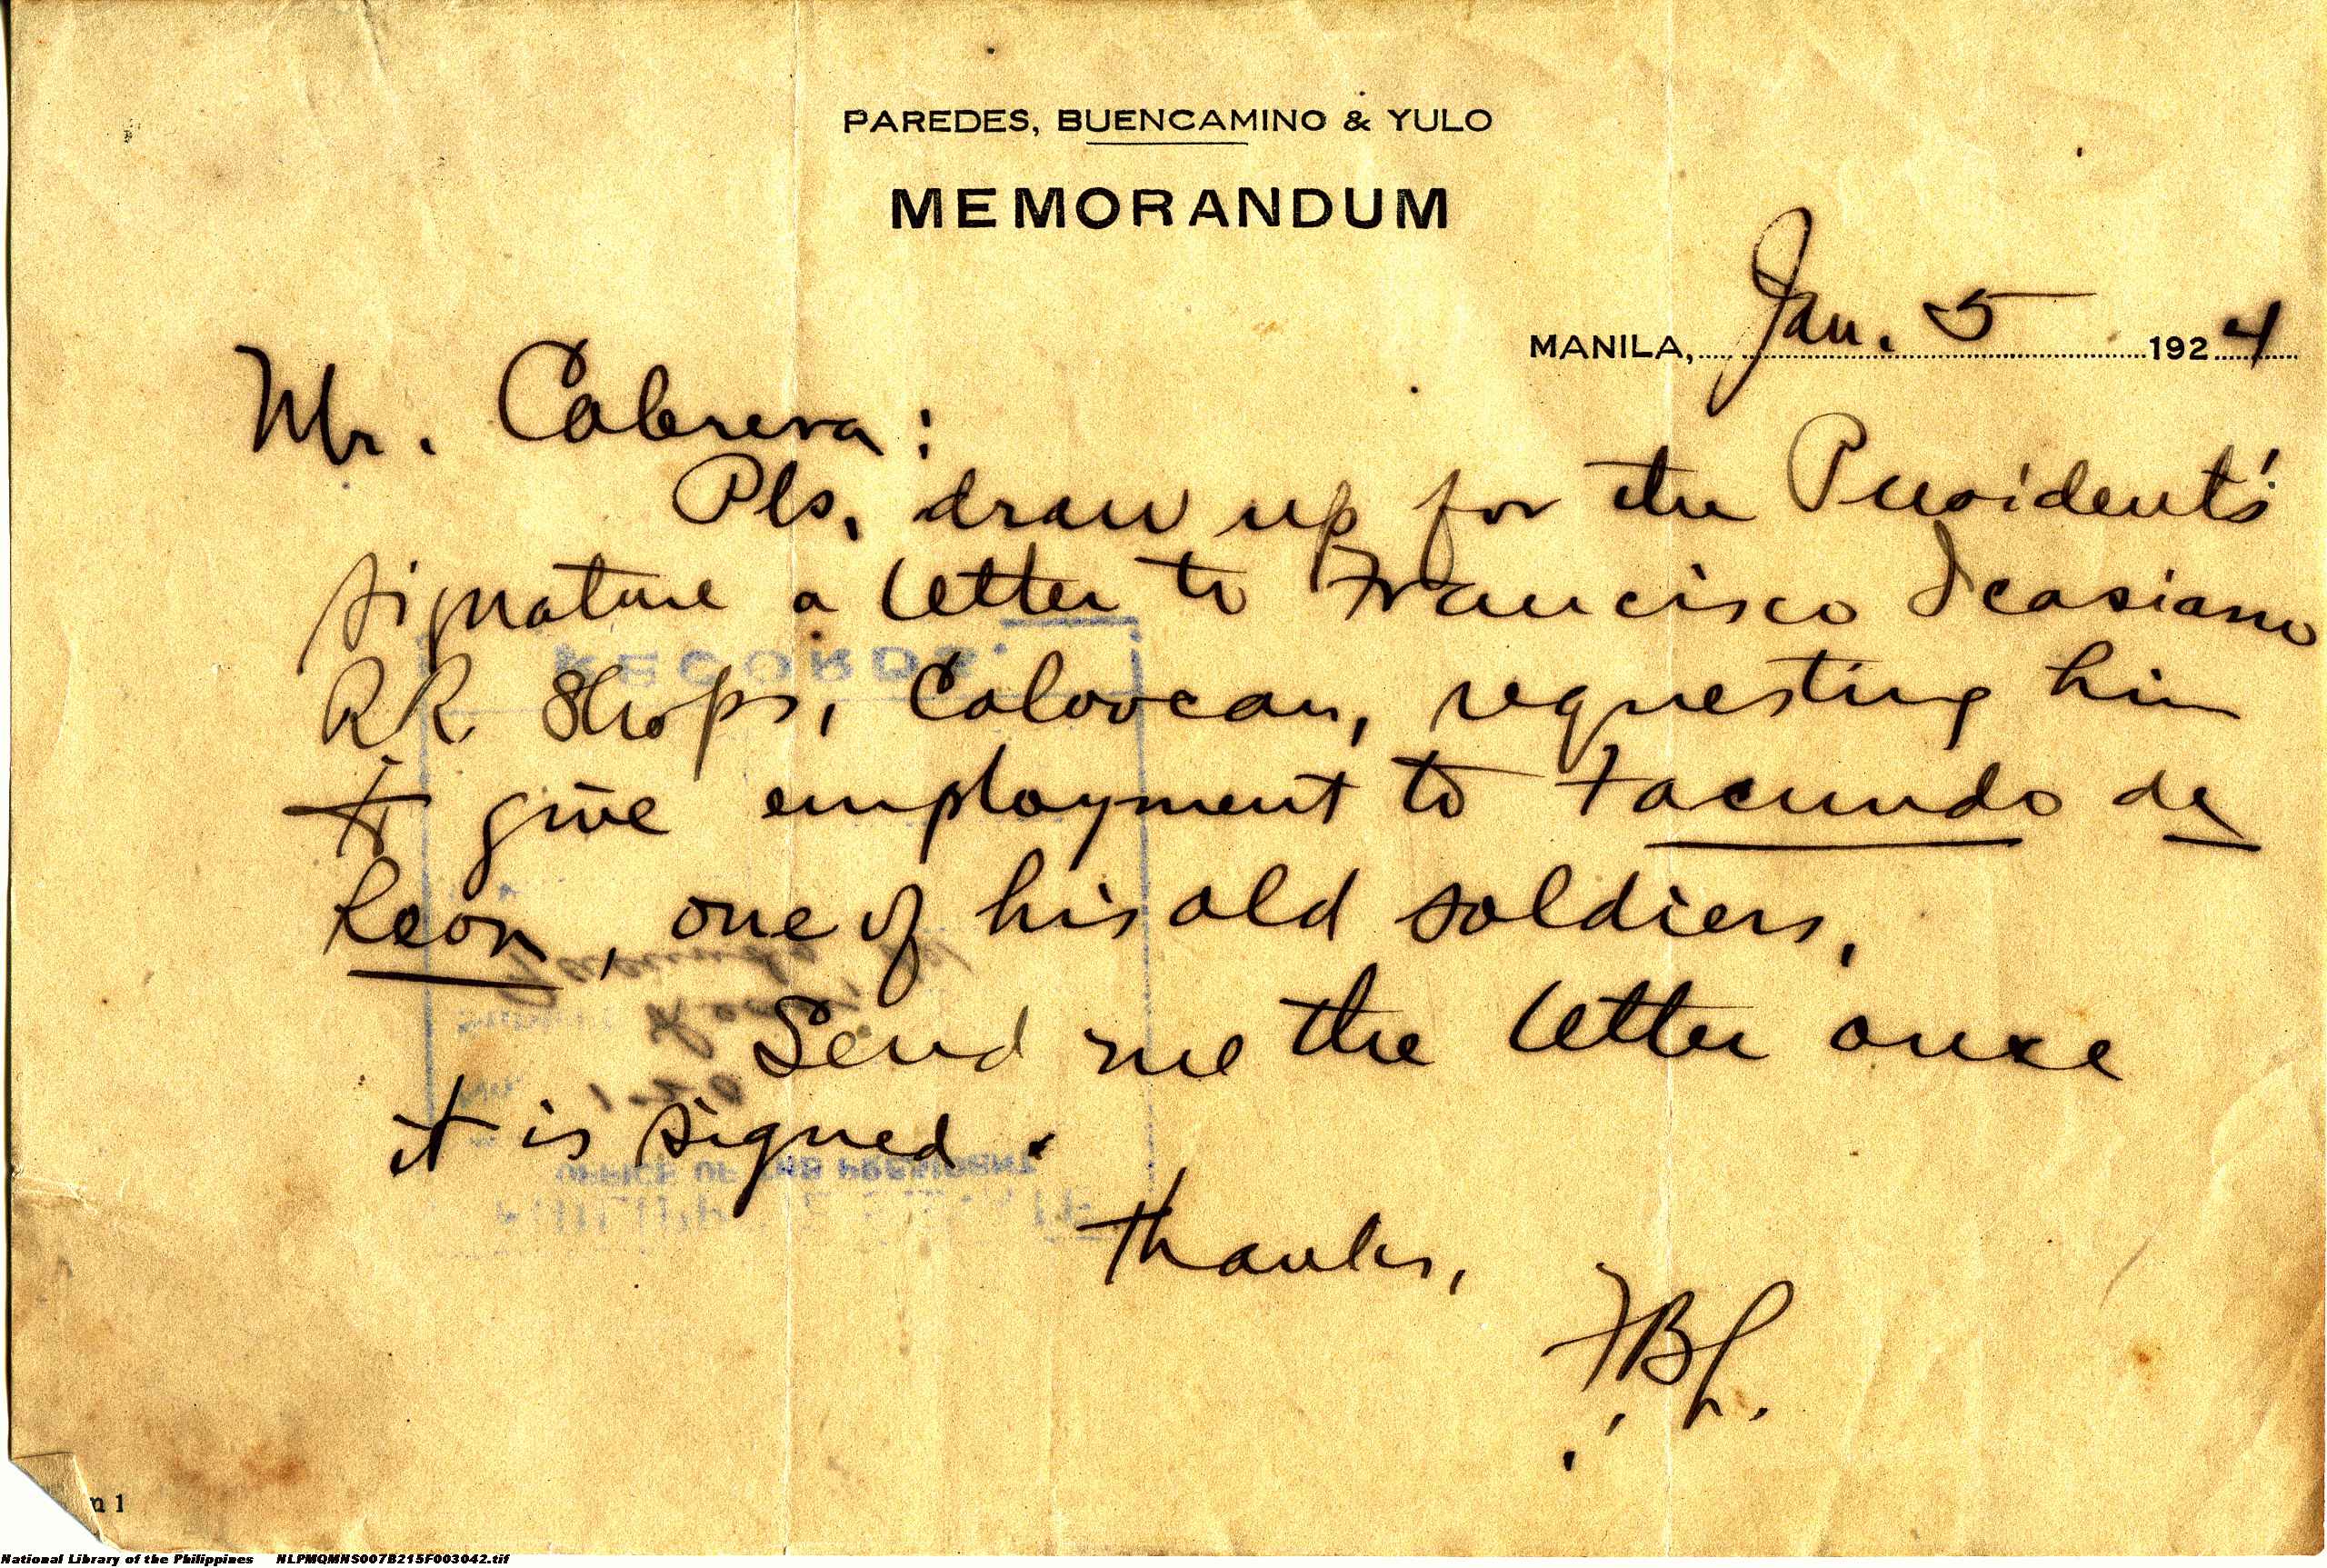 PAREDES, BUENCAMINO & YULO
MEMORANDUM
MANILA, Jan. 5 1924
Mr. Cabrera:
Pls. draw up for the President's
signature a letter to Francisco Icasiano
RR. Shops, Caloocan, requesting him
to give employment to Facundo de
Leon, one of his old soldiers.
Send me the letter once
it is signed.
Thanks,
RECORDS.
OFFICE OF THE PRESIDENT
n 1
National Library of the Philippines NLPMQMNS007B215F003042.tif